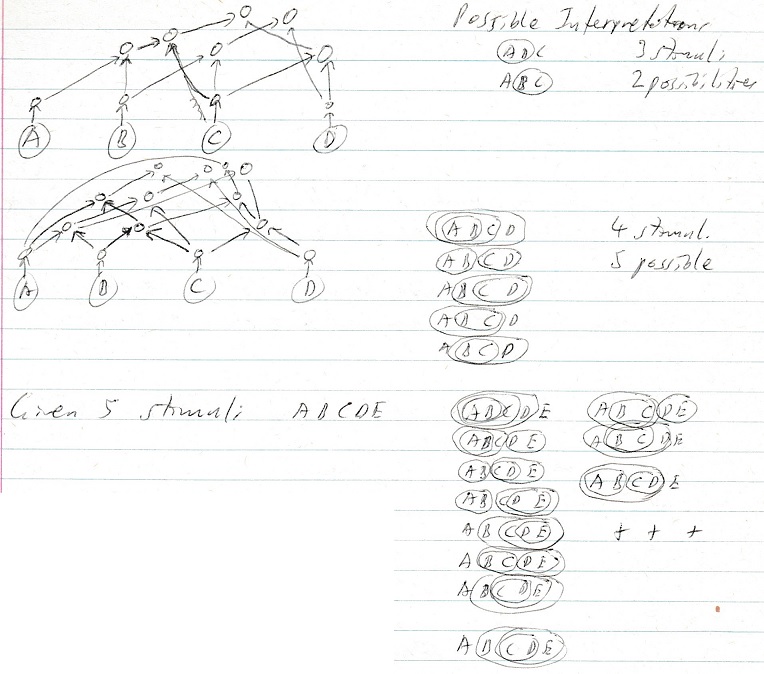 Possible Interpretations
A B C 3 stimuli
A B C 2 possibilities
A B C D
A B C D
A B C D 4 stimul.
A B C D 5 possible
A B C D
A B C D
A B C D
Given 5 stimuli A B C D E
A B C D E A B C D E
A B C D E A B C D E
A B C D E A B C D E
A B C D E
A B C D E + + +
A B C D E
A B C D E
A B C D E